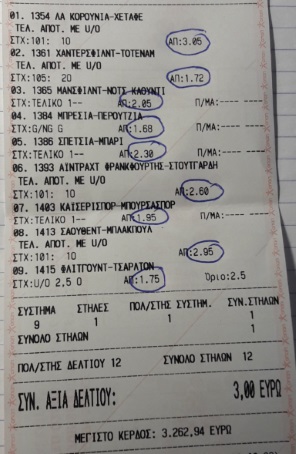 01. 1354 ΛΑ ΚΟΡΟΥΝΙΑ-ΧΕΤΑΦΕ
ΤΕΛ. ΑΠΟΤ. ΜΕ U/O
ΣΤΧ:101: 10 ΑΠ:3.05
02. 1361 ΧΑΝΤΕΡΣΦΙΛΝΤ-ΤΟΤΕΝΑΜ
ΤΕΛ. ΑΠΟΤ. ΜΕ U/O
ΣΤΧ:105: 20 ΑΠ:1.72
03. 1365 ΜΑΝΣΦΙΛΝΤ-ΝΟΤΣ ΚΑΟΥΝΤΙ
ΣΤΧ:ΤΕΛΙΚΟ 1-- ΑΠ:2.05 Π/ΜΑ:---- ----
04. 1384 ΜΠΡΕΣΙΑ-ΠΕΡΟΥΤΖΙΑ
ΣΤΧ:G/NG G ΑΠ:1.68 Π/ΜΑ:---- ----
05. 1386 ΣΠΕΤΣΙΑ-ΜΠΑΡΙ
ΣΤΧ:ΤΕΛΙΚΟ 1-- ΑΠ:2.30 Π/ΜΑ:---- ----
06. 1393 ΑΙΝΤΡΑΧΤ ΦΡΑΝΚΦΟΥΡΤΗΣ-ΣΤΟΥΤΓΑΡΔΗ
ΤΕΛ. ΑΠΟΤ. ΜΕ U/O
ΣΤΧ:101: 10 ΑΠ:2.60
07. 1403 ΚΑΙΣΕΡΙΣΠΟΡ-ΜΠΟΥΡΣΑΣΠΟΡ
ΣΤΧ:ΤΕΛΙΚΟ 1-- ΑΠ:1.95 Π/ΜΑ:---- ----
08. 1413 ΣΑΟΥΘΕΝΤ-ΜΠΛΑΚΠΟΥΛ
ΤΕΛ. ΑΠΟΤ. ΜΕ U/O
ΣΤΧ:101: 10 ΑΠ:2.95
09. 1415 ΦΛΙΤΓΟΥΝΤ-ΤΣΑΡΛΤΟΝ
ΣΤΧ:U/O 2,5 O ΑΠ:1.75 Όριο:2.5
ΣΥΣΤΗΜΑ ΣΤΗΛΕΣ ΠΟΛ/ΣΤΗΣ ΣΥΣΤΗΜ. ΣΥΝ.ΣΤΗΛΩΝ
9 1 1 1
ΣΥΝΟΛΟ ΣΤΗΛΩΝ 1
ΠΟΛ/ΣΤΗΣ ΔΕΛΤΙΟΥ 12 ΣΥΝΟΛΟ ΣΤΗΛΩΝ 12
ΣΥΝ. ΑΞΙΑ ΔΕΛΤΙΟΥ: 3,00 ΕΥΡΩ
ΜΕΓΙΣΤΟ ΚΕΡΔΟΣ: 3.262,94 ΕΥΡΩ